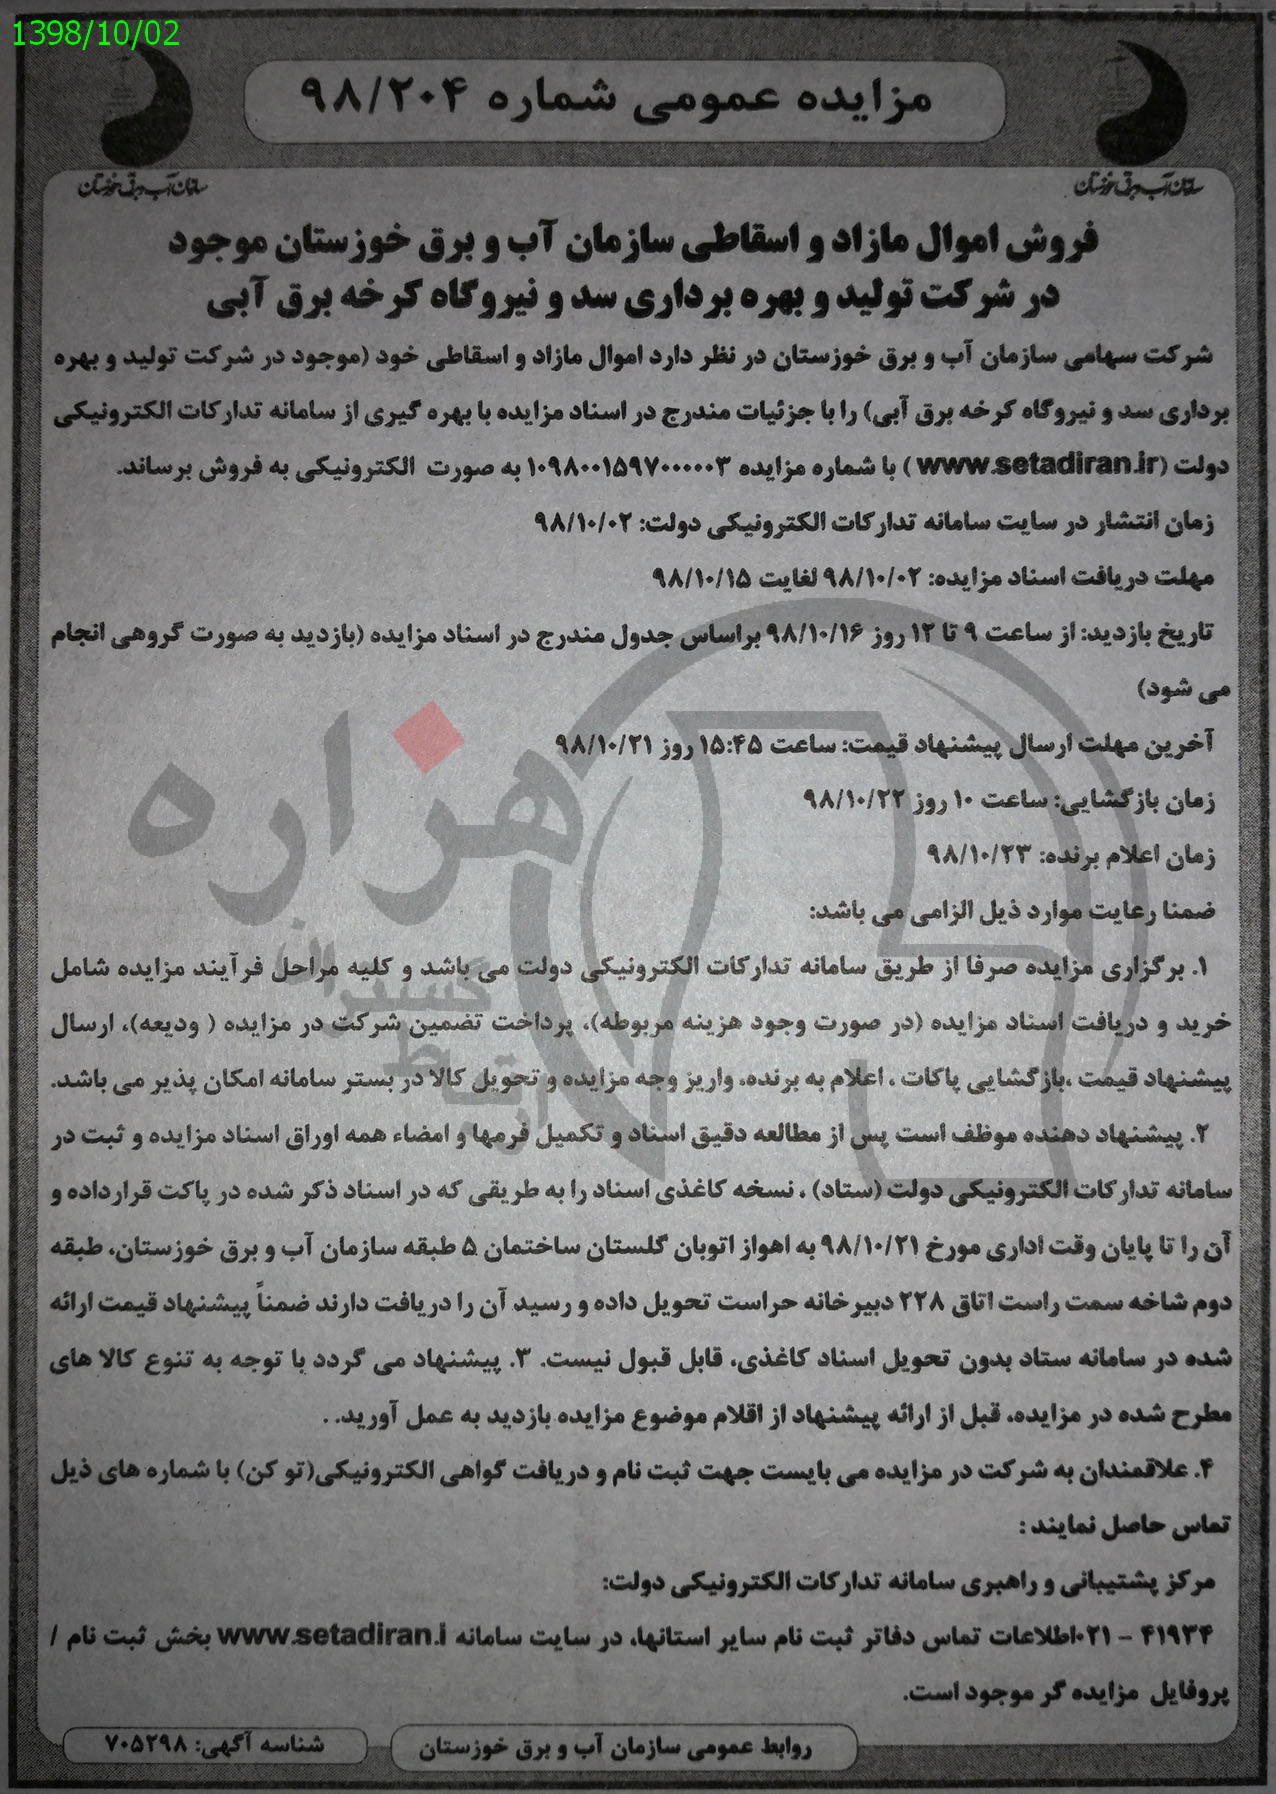 1398/10/02
مزایده عمومی شماره ۹۸/۲۰۴
سازمان آب و برق خوزستان
سازمان آب و برق خوزستان
فروش اموال مازاد و اسقاطی سازمان آب و برق خوزستان موجود
در شرکت تولید و بهره برداری سد و نیروگاه کرخه برق آبی
شرکت سهامی سازمان آب و برق خوزستان در نظر دارد اموال مازاد و اسقاطی خود (موجود در شرکت تولید و بهره
برداری سد و نیروگاه کرخه برق آبی) را با جزئیات مندرج در اسناد مزایده با بهره گیری از سامانه تدارکات الکترونیکی
دولت (www.setadiran.ir) با شماره مزایده ۱۰۹۸۰۰۱۵۹۷۰۰۰۰۰۳ به صورت الکترونیکی به فروش برساند.
زمان انتشار در سایت سامانه تدارکات الکترونیکی دولت: ۹۸/۱۰/۰۲
مهلت دریافت اسناد مزایده: ۹۸/۱۰/۰۲ لغایت ۹۸/۱۰/۱۵
تاریخ بازدید: از ساعت ۹ تا ۱۲ روز ۹۸/۱۰/۱۶ براساس جدول مندرج در اسناد مزایده (بازدید به صورت گروهی انجام
می شود)
آخرین مهلت ارسال پیشنهاد قیمت: ساعت ۱۵:۴۵ روز ۹۸/۱۰/۲۱
زمان بازگشایی: ساعت ۱۰ روز ۹۸/۱۰/۲۲
زمان اعلام برنده: ۹۸/۱۰/۲۳
ضمنا رعایت موارد ذیل الزامی می باشد:
۱. برگزاری مزایده صرفا از طریق سامانه تدارکات الکترونیکی دولت می باشد و کلیه مراحل فرآیند مزایده شامل
خرید و دریافت اسناد مزایده (در صورت وجود هزینه مربوطه)، پرداخت تضمین شرکت در مزایده ( ودیعه)، ارسال
پیشنهاد قیمت ،بازگشایی پاکات ، اعلام به برنده، واریز وجه مزایده و تحویل کالا در بستر سامانه امکان پذیر می باشد.
۲. پیشنهاد دهنده موظف است پس از مطالعه دقیق اسناد و تکمیل فرمها و امضاء همه اوراق اسناد مزایده و ثبت در
سامانه تدارکات الکترونیکی دولت (ستاد) ، نسخه کاغذی اسناد را به طریقی که در اسناد ذکر شده در پاکت قرارداده و
آن را تا پایان وقت اداری مورخ ۹۸/۱۰/۲۱ به اهواز اتوبان گلستان ساختمان ۵ طبقه سازمان آب و برق خوزستان، طبقه
دوم شاخه سمت راست اتاق ۲۲۸ دبیرخانه حراست تحویل داده و رسید آن را دریافت دارند ضمناً پیشنهاد قیمت ارائه
شده در سامانه ستاد بدون تحویل اسناد کاغذی، قابل قبول نیست. ۳. پیشنهاد می گردد با توجه به تنوع کالا های
مطرح شده در مزایده، قبل از ارائه پیشنهاد از اقلام موضوع مزایده بازدید به عمل آورید. .
۴. علاقمندان به شرکت در مزایده می بایست جهت ثبت نام و دریافت گواهی الکترونیکی(تو کن) با شماره های ذیل
تماس حاصل نمایند :
مرکز پشتیبانی و راهبری سامانه تدارکات الکترونیکی دولت:
۴۱۹۳۴ – ۰۲۱اطلاعات تماس دفاتر ثبت نام سایر استانها، در سایت سامانه www.setadiran.i بخش ثبت نام /
پروفایل مزایده گر موجود است.
روابط عمومی سازمان آب و برق خوزستان
شناسه آگهی: ۷۰۵۲۹۸
هزاره
گستران
ارتباط